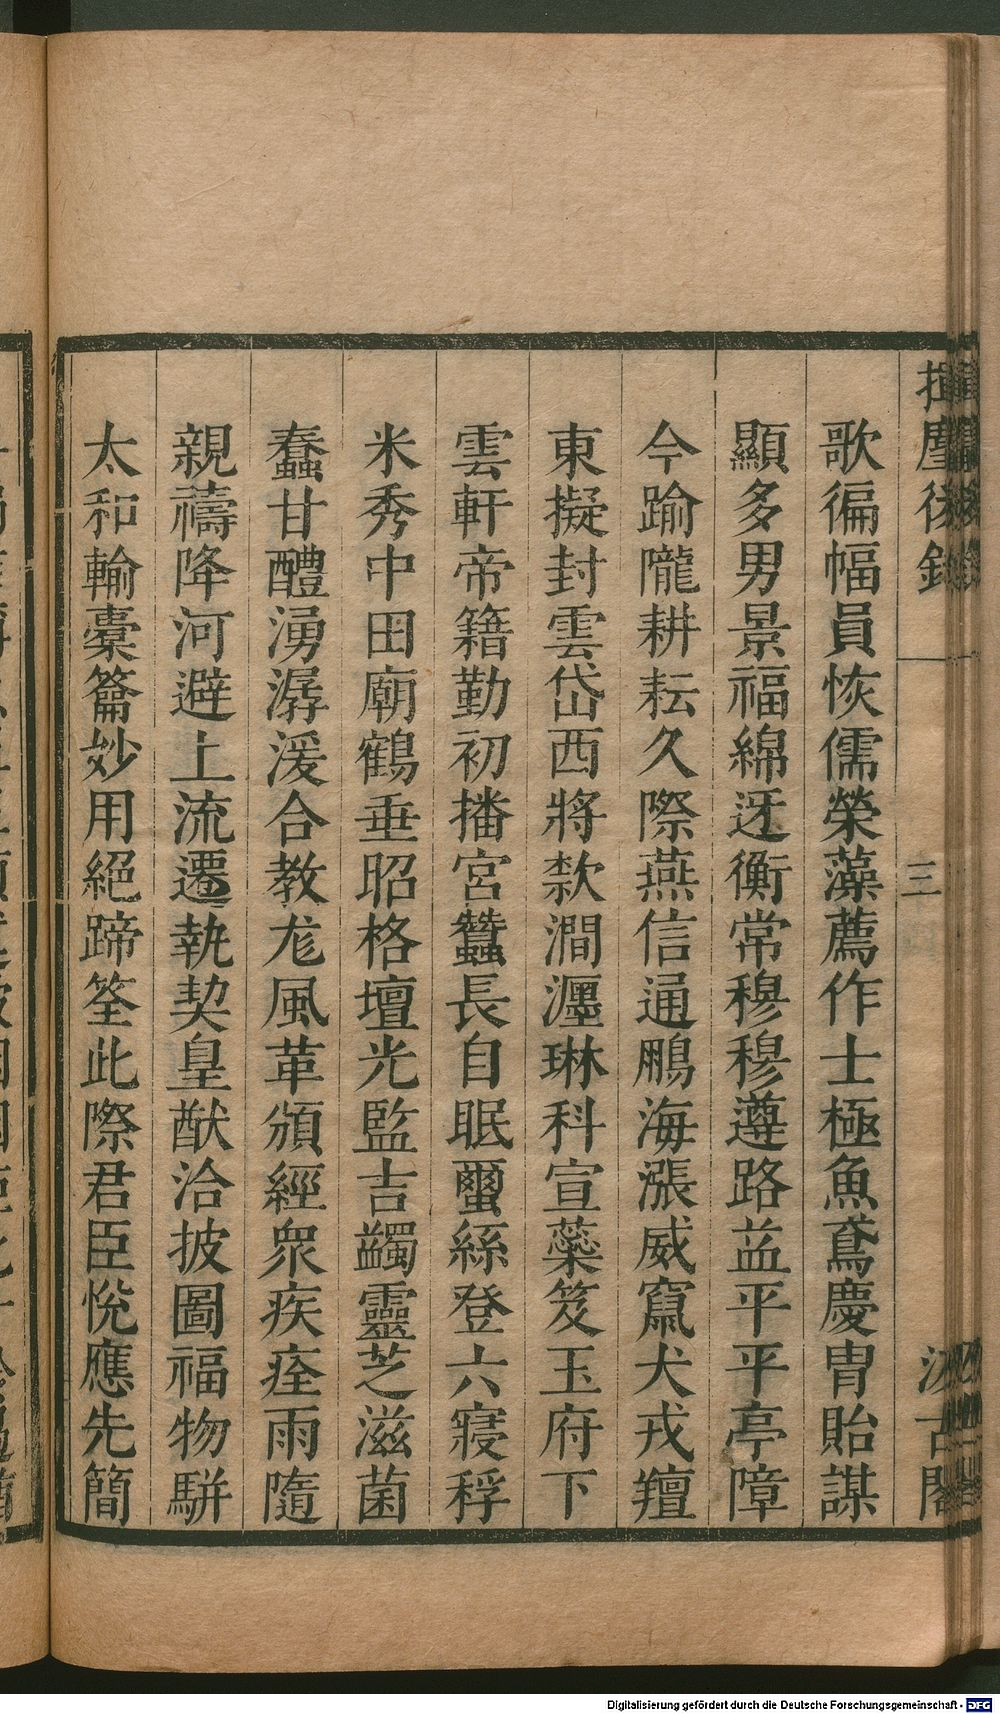 揮麈後錄
三
汲古閣
歌徧幅員恢儒榮藻薦作士極魚鳶慶胄貽謀
顯多男景福綿迓衡常穆穆遵路益平平亭障
今踰隴耕耘久際燕信通鵬海漲威竄犬戎羶
東擬封雲岱西將款澗瀍琳科宣蘂笈玉府下
雲軒帝籍勤初播宮蠶長自眠璽絲登六寢稃
米秀中田廟鶴垂昭格壇光監吉蠲靈芝滋菌
蠢甘醴湧潺湲合教尨風革頒經衆疾痊雨隨
親禱降河避上流遷執契皇猷洽披圖福物駢
太和輸橐籥妙用絕蹄筌此際君臣悅應先簡
Digitalisierung gefördert durch die Deutsche Forschungsgemeinschaft - DFG